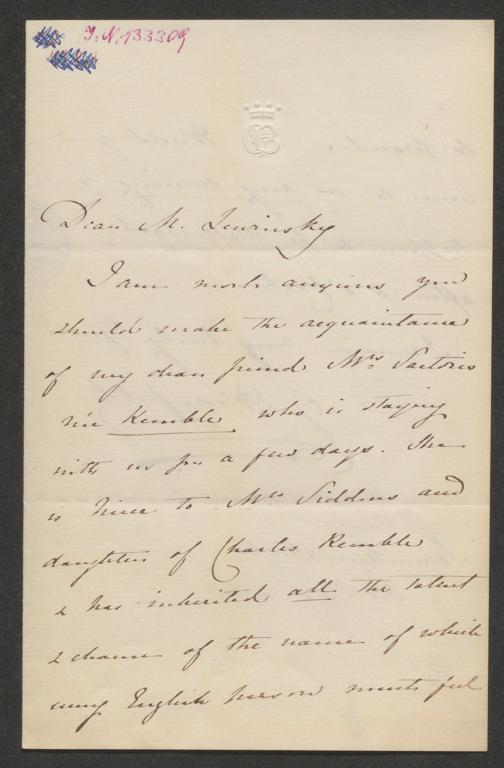 I.N. 133309
Dear M. Lewinsky
I am most anxious you
should make the acquaintance
of my dear friend Mrs Sartoris
née Kemble who is staying
with us for a few days. She
is niece to Mrs Siddons and
daughter of Charles Kemble
& has inherited all the talent
& charm of the name of which
every English person must feel